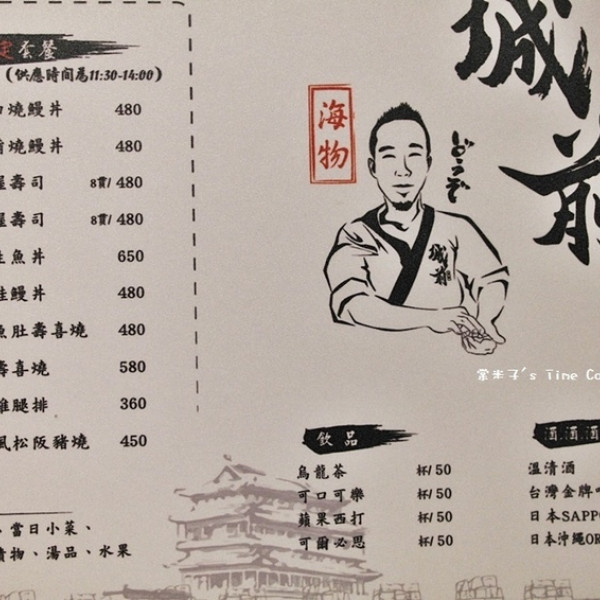 定套餐
(供應時間為11:30-14:00)
燒鰻丼 480
燒鰻丼 480
握壽司 8貫/ 480
握壽司 8貫/ 480
鮭魚丼 650
鮭鰻丼 480
魚肚壽喜燒 480
壽喜燒 580
雞腿排 360
風松阪豬燒 450
、當日小菜、
漬物、湯品、水果
海物
どうぞ
城前
城前
's Time Co
飲品
烏龍茶 杯/ 50
可口可樂 杯/ 50
蘋果西打 杯/ 50
可爾必思 杯/ 50
酒.酒.酒
溫清酒
台灣金牌
日本SAPPO
日本沖繩OR